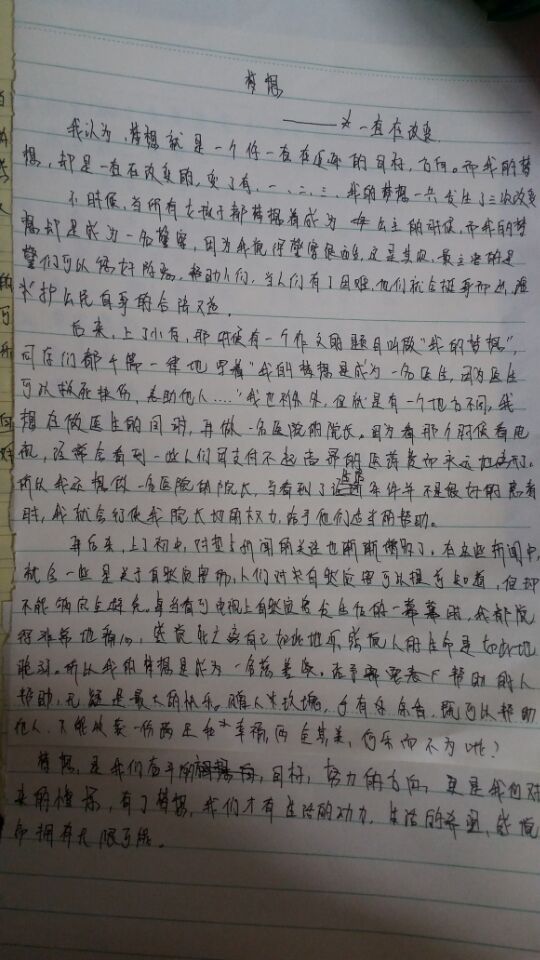 梦想
——一直在改变
我认为,梦想就是一个你一直在追逐的目标,方向。而我的梦
想,却是一直在改变的,变了有,一、二、三,我的梦想一共发生了三次改变
小时候,当所有女孩子都梦想着成为公主的时候,而我的梦
想却是成为一名警察,因为我觉得警察很,这是其次,最主要的是
警们可以惩奸除恶,帮助人们,当人们有了困难,他们就会挺身而出,
护公民自身的合法权益。
后来,上了小学,那时候有一个作文的题目叫做“我的梦想”,
同学们都千篇一律地写着“我的梦想是成为一名医生,因为医生
可以救死扶伤,去助他人……”我也不例外,但就是有一个地方不同,我
想在做医生的同时,再做一名医院的院长。因为看那个时候看电
视,经常会看到一些人们因支付不起高昂的医药费而永远地离开了。
所以我还想做一名医院的院长,当看到了这些条件并不是很好的患者
时,我就会行使我院长的权力,给予他们应当的帮助。
再后来,上了初中,对于新闻的关注也渐渐增多了。在这些新闻中,
就会一些是关于自然灾害的,人们对于自然灾害可以提前知道,但却
不能够完全避免。每当看到电视上自然灾害发生位的一幕幕时,我都觉
得难过地,感觉死之离自己如此地近,感觉人的生命是如此地
脆弱。所以我的梦想是成为一名慈善家,去帮需要帮助的人
帮助,无疑是最大的快乐。赠人玫瑰,手有余香,既可以帮助
他人,又能收获一份满足和幸福,两全其美,何乐而不为呢?
梦想,是我们奋斗的目标,努力的方向,更是我们对未
来的憧憬,有了梦想,我们才有生活的动力,生活的希望,感觉
即拥有无限可能。